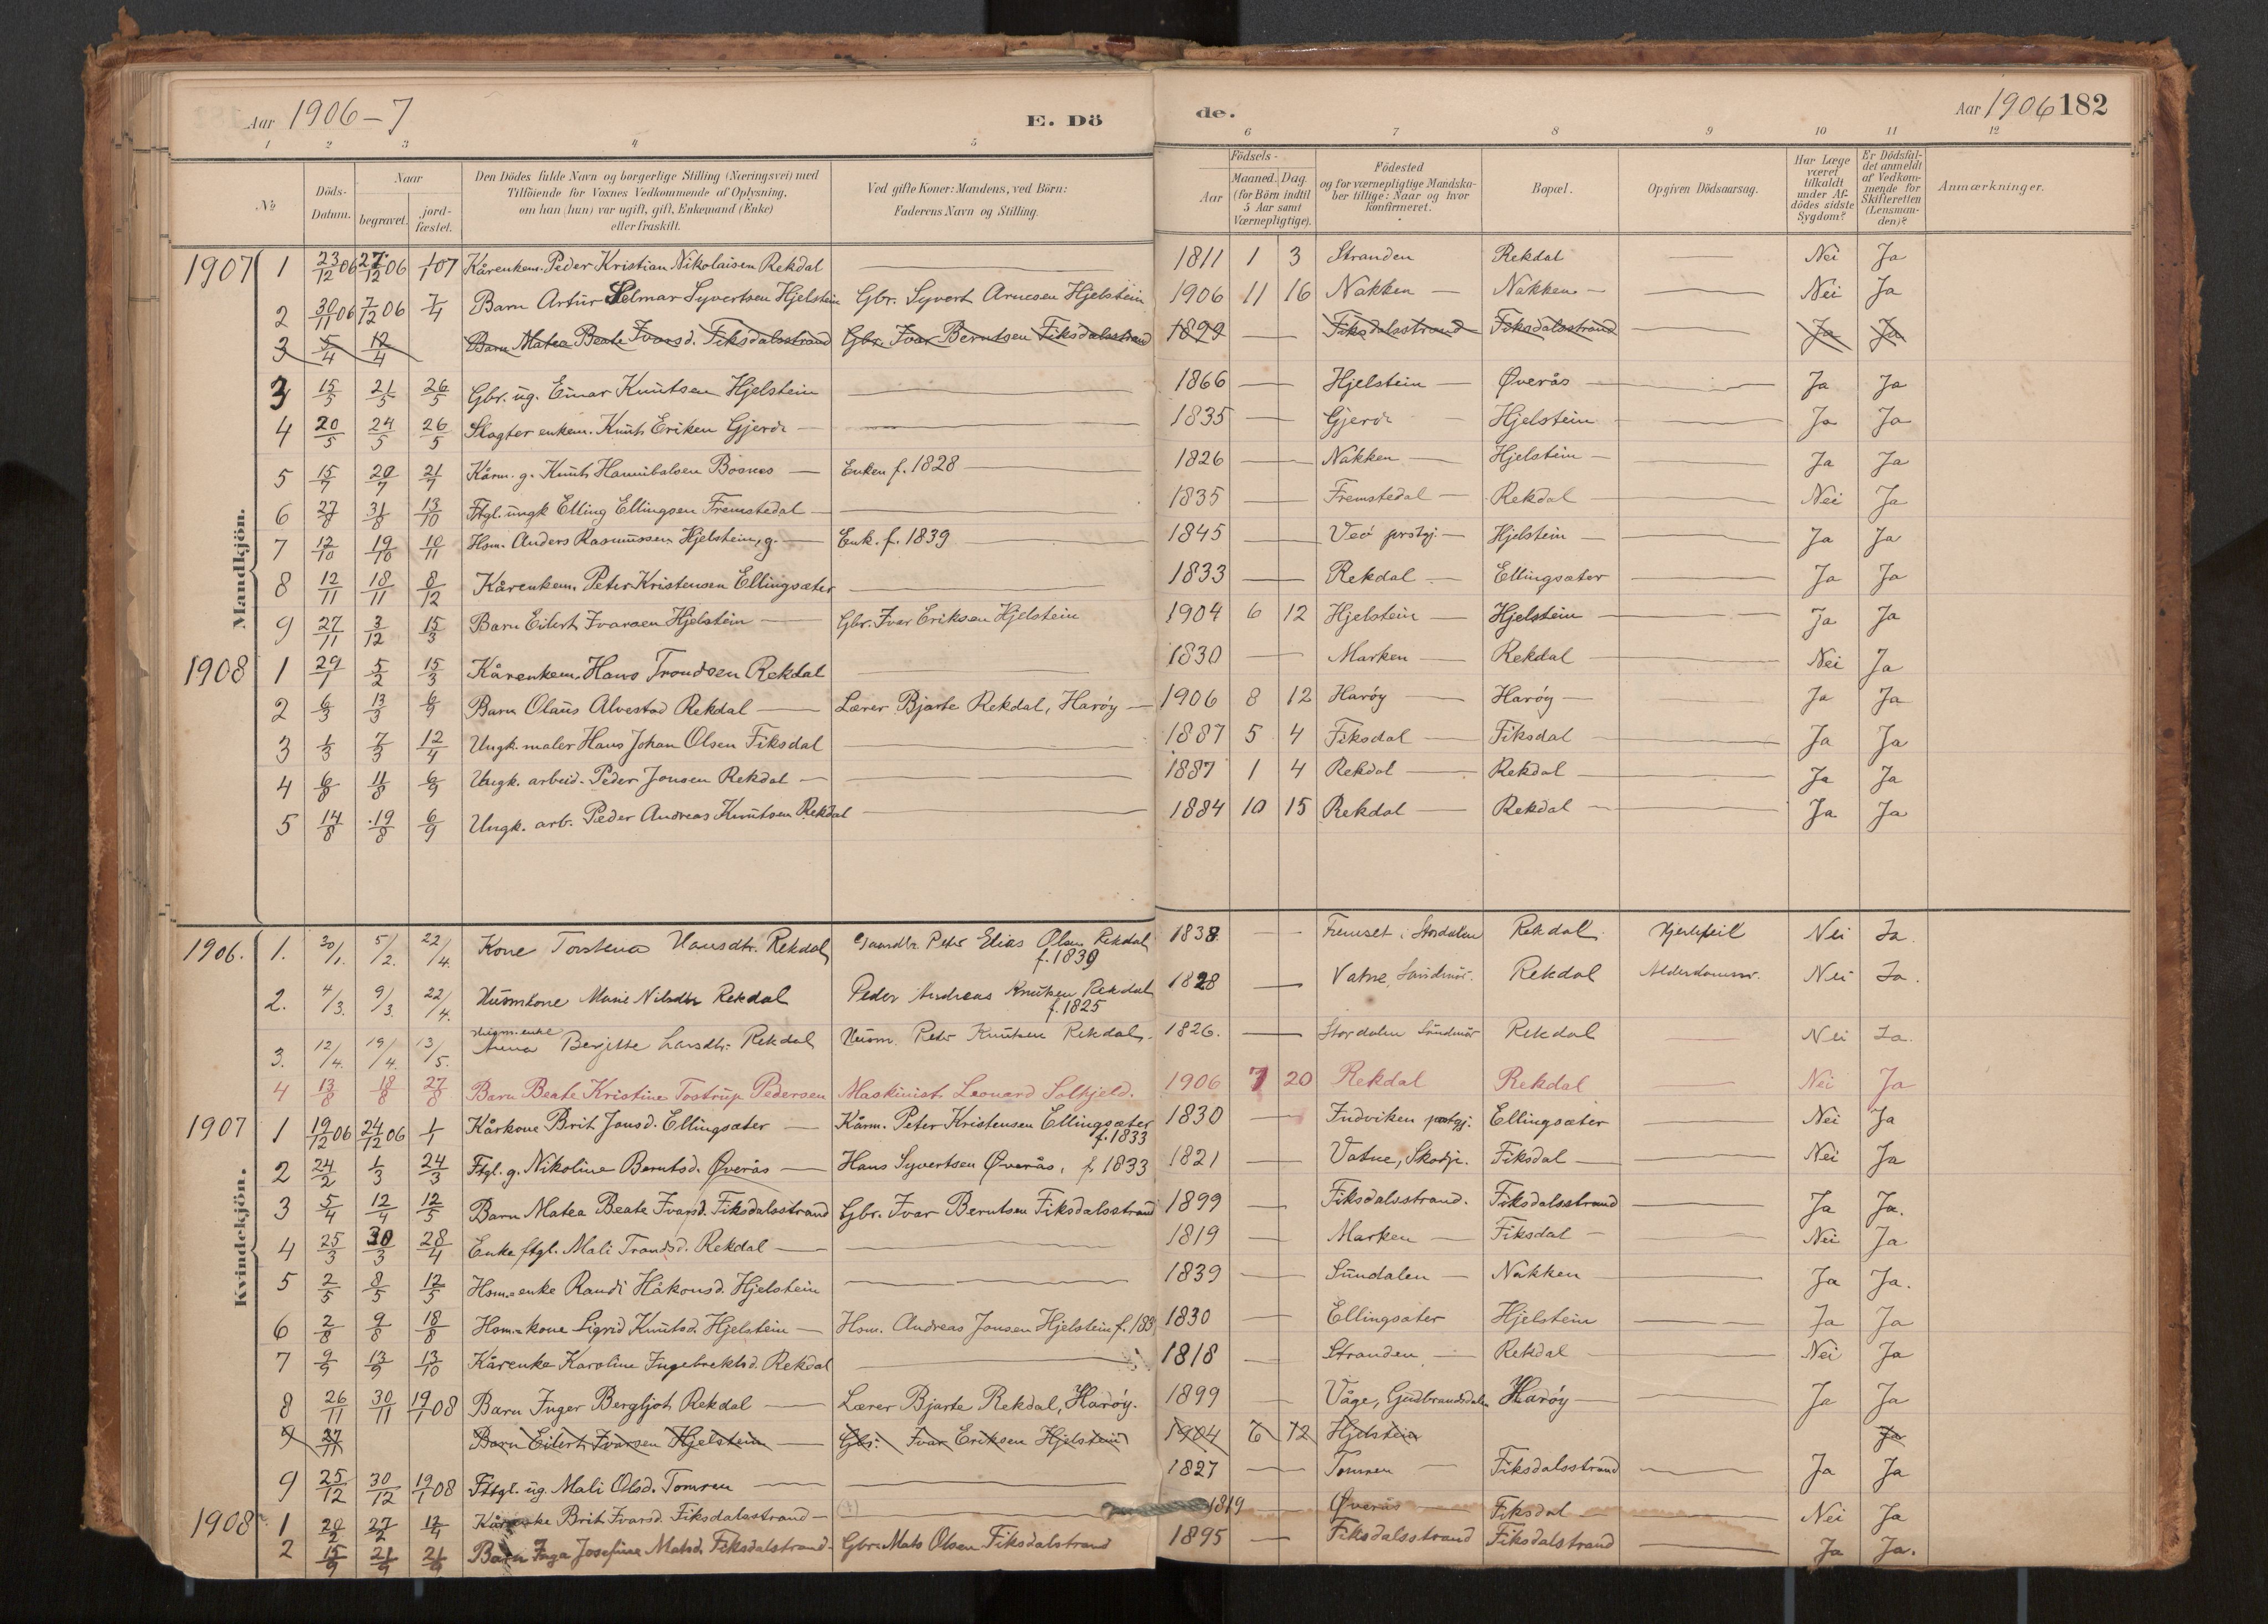 Aar 1906-7 E. Dö de. Aar 1906 182
1 2 3 4 5 6 7 8 9 10 11 12
№ Döds-Datum. Naar begravet. jord-fæstet. Den Dödes fulde Navn og borgerlige Stilling (Næringsvei) med Tilföiende for Voxnes Vedkommende af Oplysning, om han (hun) var ugift, gift, Enkemand (Enke) eller fraskilt. Ved gifte Koner: Mandens, ved Börn: Faderens Navn og Stilling. Födsels- Aar Maaned. Dag. (for Börn indtil 5 Aar samt Værnepligtige). Födested og for værnepligtige Mandskaber tillige: Naar og hvor konfirmeret. Bopæl. Opgiven Dödsaarsag. Har Læge været tilkaldt under Afdödes sidste Sygdom? Er Dödsfaldet anmeldt af Vedkommende for Skifteretten (Lensmanden)? Anmærkninger.
Mandkjön.
1907 1 23/12 06 27/12 06 1/1 07 Kårenkem. Peder Kristian Nikolaisen Rekdal — 1811 1 3 Stranden Rekdal — Nei Ja
2 30/11 06 7/12 06 7/4 Barn Artür Selmar Syvertsen Hjelstein Gbr. Syvert Arnesen Hjelstein 1906 11 16 Nakken — Nakken — Nei Ja
3 5/4 12/4 Barn Matea Beate Ivarsd. Fiksdalsstrand Gbr. Ivar Berntsen Fiksdalsstrand 1899 — Fiksdalsstrand Fiksdalsstrand — Ja Ja
3 15/5 21/5 26/5 Gbr. üg. Einar Knütsen Hjelstein — 1866 — Hjelstein — Øverås — Ja Ja
4 20/5 24/5 26/5 Slagter enkem. Knüt Eriken Gjerde — 1835 — Gjerde Hjelstein — Ja Ja
5 15/7 20/7 21/7 Kårm. g. Knüt Hannibalsen Bosnes — Enken f. 1828 — 1826 — Nakken — Hjelstein — Ja Ja
6 27/8 31/8 13/10 Ftgl. üngk Elling Ellingsen Fremstedal — 1835 — Fremstedal — Rekdal — Nei Ja
7 12/10 19/10 10/11 Hsm. Anders Rasmüssen Hjelstein, g. — Enk. f. 1839 — 1845 — Veö prstgj. — Hjelstein — Ja Ja
8 12/11 18/11 8/12 Kårenkem. Peter Kristensen Ellingsæter — 1833 — Rekdal — Ellingsæter — Ja Ja
9 27/11 3/12 15/3 Barn Eilert Ivarsen Hjelstein — Gbr. Ivar Eriksen Hjelstein 1904 6 12 Hjelstein — Hjelstein — Ja Ja
1908 1 29/1 5/2 15/3 Kårenkem. Hans Trondsen Rekdal — 1830 — Marken — Rekdal — Nei Ja
2 6/3 13/3 6/9 Barn Olaüs Alvestad Rekdal — Lærer Bjarte Rekdal, Haröy — 1906 8 12 Haröy — Haröy — Ja Ja
3 1/3 7/3 12/4 Ungk. maler Hans Johan Olsen Fiksdal — 1887 5 4 Fiksdal — Fiksdal — Ja Ja
4 6/8 11/8 6/9 Ungk. arbeid. Peder Jonsen Rekdal — 1887 1 4 Rekdal — Rekdal — Ja Ja
5 14/8 19/8 6/9 Ungk. arb. Peder Andreas Knütsen Rekdal — 1884 10 15 Rekdal — Rekdal — Ja Ja
Kvindekjön.
1906. 1. 30/1. 5/2. 22/4. Kone Torstena Hansdtr. Rekdal Gaardbr. Peter Elias Olsen Rekdal f. 1839 1838 — Fremset i Stordalen Rekdal Hjertefeil Nei Ja.
2. 4/3. 9/3. 22/4. Hüsmkone Marie Nilsdtr Rekdal Peder Andreas Knutsen Rekdal f. 1825 1828 — Vatne, Söndmör. Rekdal Alderdomssv. Nei Ja.
3. 12/4. 19/4. 13/5. Husm. enke Anna Bergitte Larsdtr. Rekdal Hüsm. Peter Knütsen Rekdal. 1826. — Stordalen Söndmör Rekdal — Nei Ja.
4 13/8 18/8 27/8 Barn Beate Kristine Tostrüp Pedersen Maskinist Leonard Solkjeld. 1906 7 20 Rekdal Rekdal — Nei Ja
1907 1 19/12 06 24/12 06 1/1 Kårkone Brit Jonsd. Ellingsæter — Kårm. Peter Kristensen Ellingsæter f. 1833 1830 — Indviken prstgj. Ellingsæter — Nei Ja
2 24/2 1/3 24/3 Ftgl. g. Nikoline Berntsd. Øverås — Hans Syvertsen Øverås, f. 1833 1821 — Vatne, Skodje. Fiksdal — Nei Ja
3 5/4 12/4 12/5 Barn Matea Beate Ivarsd. Fiksdalsstrand Gbr. Ivar Berntsen Fiksdalsstrand 1899 — Fiksdalsstrand. Fiksdalsstrand — Ja Ja.
4 25/3 30/3 28/4 Enke ftgl. Mali Trondsd. Rekdal — 1819 — Marken — Fiksdal — Nei Ja
5 2/5 8/5 12/5 Hsm.=enke Randi Håkonsd. Hjelstein — 1839 — Sündalen — Nakken — Ja Ja.
6 2/8 9/8 18/8 Hsm.=kone Sigrid Knütsd. Hjelstein — Hsm. Andreas Jonsen Hjelstein f. 183 1830 — Ellingsæter Hjelstein — Ja Ja
7 9/9 13/9 13/10 Kårenke Karoline Ingebrektsd. Rekdal — 1818 — Stranden — Rekdal — Nei Ja
8 26/11 30/11 19/1 08 Barn Inger Bergljot Rekdal — Lærer Bjarte Rekdal, Haröy. 1899 — Våge, Gudbrandsdalen Haröy — Ja Ja
9 27/11 Barn Eilert Ivarsen Hjelstein — Gbr. Ivar Eriksen Hjelstein 1904 6 12 Hjelstein Ja
9 25/12 30/12 19/1 08 Fttgl. üg. Mali Olsd. Tomren — 1827 — Tomren — Fiksdalsstrand — Ja Ja
1908 1 20/2 27/2 12/4 Kårenke Brit Ivarsd. Fiksdalsstrand — 1819 — Øverås — Fiksdal — Nei Ja
2 15/9 21/9 21/9 Barn Inga Josefine Matsd. Fiksdalstrand. Gbr. Mats Olsen Fiksdalstrand 1895 — Fiksdalsstrand Fiksdalstrand — Ja Ja.